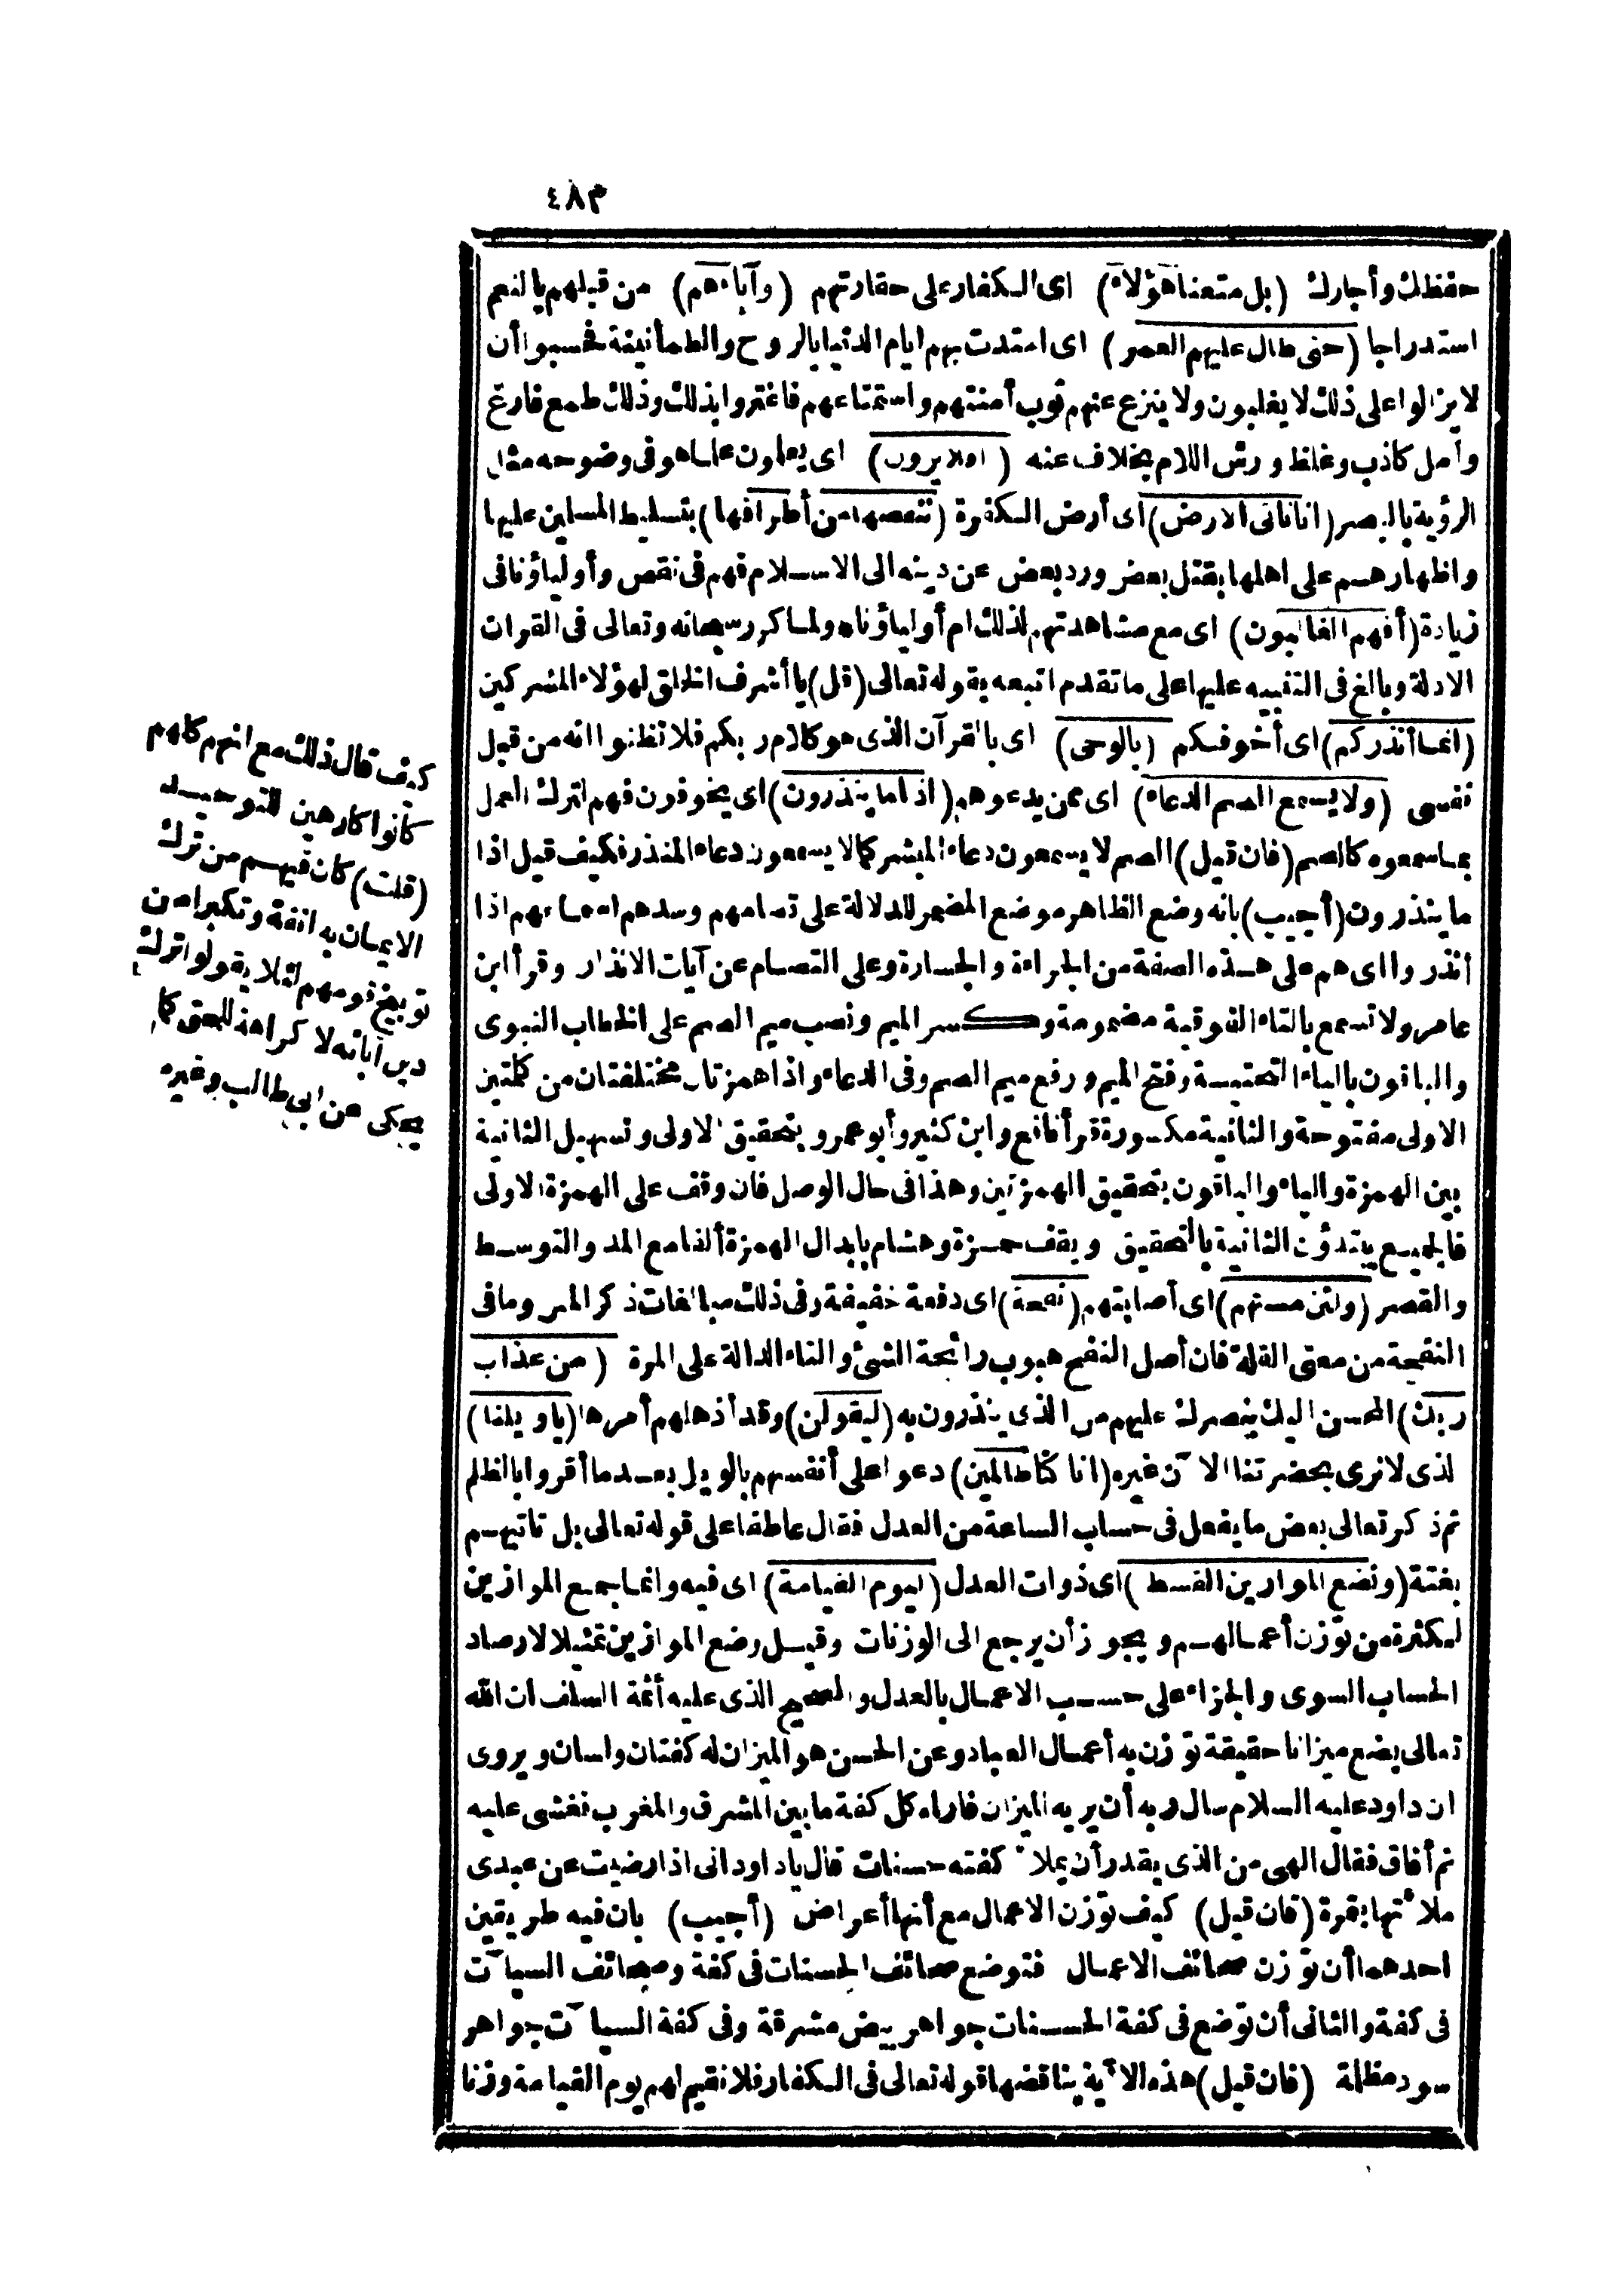 ٤٨م
حفظك وأجارك (بل متعنا هؤلاء) اى الكفار على حقارتهم (وآباءهم) من قبلهم بالنعم
استدراجا (حتى طال عليهم العمر) اى امتدت بهم ايام الدنيا بالروح والطمأنينة فحسبوا أن
لا يزالوا على ذلك لا يغلبون ولا ينزع عنهم ثوب أمنتهم واستمتاعهم فاغتروا بذلك وذلك طمع فارغ
وأمل كاذب وغلظ ورش اللام بخلاف عنه (أفلا يرون) اى يعلمون علما هو فى وضوحه مثل
الرؤية بالبصر (انا نأتى الارض) اى أرض الكفرة (ننقصها من أطرافها) بتسليط المسلمين عليها
واظهارهم على اهلها بقتل بعض ورد بعض عن دينه الى الاسلام فهم فى نقص وأولياؤنا فى
زيادة (أفهم الغالبون) اى مع مشاهدتهم لذلك ام أولياؤنا ولما كرر سبحانه وتعالى فى القرآن
الادلة وبالغ فى التنبيه عليها على ما تقدم اتبعه بقوله تعالى (قل) يا أشرف الخلق لهؤلاء المشركين
(انما أنذركم) اى أخوفكم (بالوحى) اى بالقرآن الذى هو كلام ربكم فلا تظنوا انه من قبل
نفسى (ولا يسمع الصم الدعاء) اى ممن يدعوهم (اذا ما ينذرون) اى يخوفون فهم لترك العمل
بما سمعوه كالصم (فان قيل) الصم لا يسمعون دعاء المبشر كما لا يسمعون دعاء المنذر فكيف قيل اذا
ما ينذرون (أجيب) بانه وضع الظاهر موضع المضمر للدلالة على تصامهم وسدهم اسماعهم اذا
أنذروا اى هم على هذه الصفة من الجراءة والجسارة وعلى التصام عن آيات الانذار وقرأ ابن
عامر ولا تسمع بالتاء الفوقية مضمومة وكسر الميم ونصب ميم الصم على الخطاب النبوى
والباقون بالياء التحتية وفتح الميم ورفع ميم الصم وفى الدعاء واذا همزتان مختلفتان من كلمتين
الاولى مفتوحة والثانية مكسورة قرأ نافع وابن كثير وأبو عمرو بتحقيق الاولى وتسهيل الثانية
بين الهمزة والياء والباقون بتحقيق الهمزتين وهذا فى حال الوصل فان وقف على الهمزة الاولى
فالجميع يبتدؤن الثانية بالتحقيق ويقف حمزة وهشام بابدال الهمزة ألفا مع المد والتوسط
والقصر (ولئن مستهم) اى أصابتهم (نفحة) اى دفعة خفيفة وفى ذلك مبالغات ذكر المس وما فى
النفحة من معنى القلة فان أصل النفح هبوب رائحة الشئ والتاء الدالة على المرة (من عذاب
ربك) المحسن اليك بنصرك عليهم من الذى ينذرون به (ليقولن) وقد أذهلهم أمرها (يا ويلنا)
لذى لا نرى بحضرتنا الآن غيره (انا كنا ظالمين) دعوا على أنفسهم بالويل بعد ما أقروا بالظلم
ثم ذكر تعالى بعض ما يفعل فى حساب الساعة من العدل فقال عاطفا على قوله تعالى بل تاتيهم
بغتة (ونضع الموازين القسط) اى ذوات العدل (ليوم القيامة) اى فيه وانما جمع الموازين
لكثرة من توزن أعمالهم ويجوز أن يرجع الى الوزنات وقيل وضع الموازين تمثيلا لارصاد
الحساب السوى والجزاء على حسب الاعمال بالعدل والصحيح الذى عليه أئمة السلف ان الله
تعالى يضع ميزانا حقيقة توزن به أعمال العباد وعن الحسن هو الميزان له كفتان ولسان ويروى
ان داود عليه السلام سال ربه أن يريه الميزان فاراه كل كفة ما بين المشرق والمغرب فغشى عليه
ثم أفاق فقال الهى من الذى يقدر أن يملأ كفته حسنات قال ياداود انى اذا رضيت عن عبدى
ملأتها بتمرة (فان قيل) كيف توزن الاعمال مع أنها أعراض (أجيب) بان فيه طريقين
احدهما أن توزن صحائف الاعمال فتوضع صحائف الحسنات فى كفة وصحائف السيآت
فى كفة والثانى أن توضع فى كفة الحسنات جواهر بيض مشرقة وفى كفة السيآت جواهر
سود مظلمة (فان قيل) هذه الآية يناقضها قوله تعالى فى الكفار فلا نقيم لهم يوم القيامة وزنا
كيف قال ذلك مع انهم كلهم
كانوا كارهين للتوحيد
(قلت) كان فيهم من ترك
الايمان به انفة وتكبرا من
توبيخ قومهم لئلا يقولوا ترك
دين آبائه لا كراهة للحق كما
يحكى عن ابى طالب وغيره